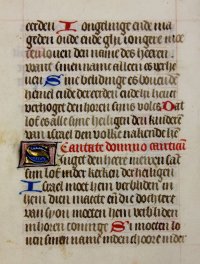 eerden Jongelinge ende ma
geden oude ende ghi iongere mit
ten louen den name des heren
want sinen name alleen is verhe
uen Sine belidinge es bouen de
hemel ende der eerden ende hi haet
verhoget den horen sins volcs Dat
lof es alle sine heiligen den kindere
van israel den volke nakende hem
Cantate domino canticum
Singet den here enen
sanc sijn lof inder kerken der heiligen
Israel moet hem verbliden in
hem dien maecte en die dochtere
van syon moeten hem verbliden
in horen coninge Si moeten lo
uen sinen name inden choore inder